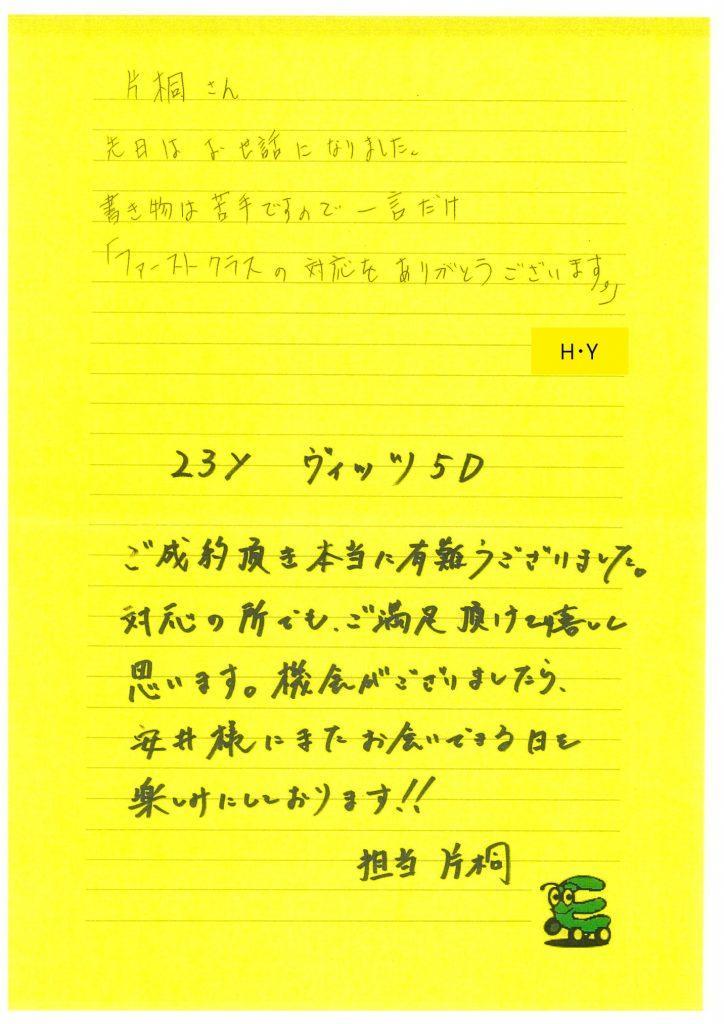 片桐さん
先日は お世話に なりました。
書き物は 苦手ですので 一言だけ
「ファーストクラスの 対応を ありがとうございます。」
H・Y
23Y ヴィッツ 5D
ご成約頂き本当に有難うございました。
対応の所でも、ご満足頂けて嬉しく
思います。機会がございましたら、
安井様にまたお会いできる日を
楽しみにしております!!
担当 片桐